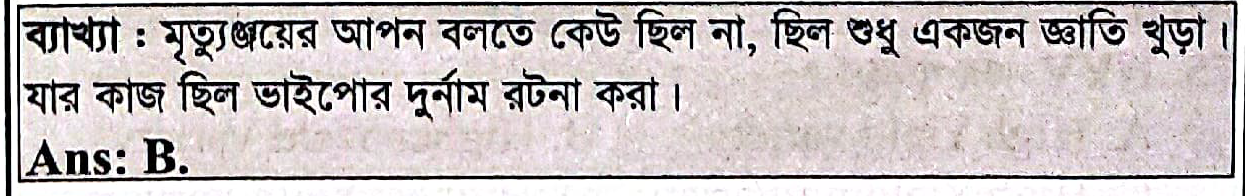 ব্যাখ্যা : মৃত্যুঞ্জয়ের আপন বলতে কেউ ছিল না, ছিল শুধু একজন জ্ঞাতি খুড়া।
যার কাজ ছিল ভাইপোর দুর্নাম রটনা করা।
Ans: B.